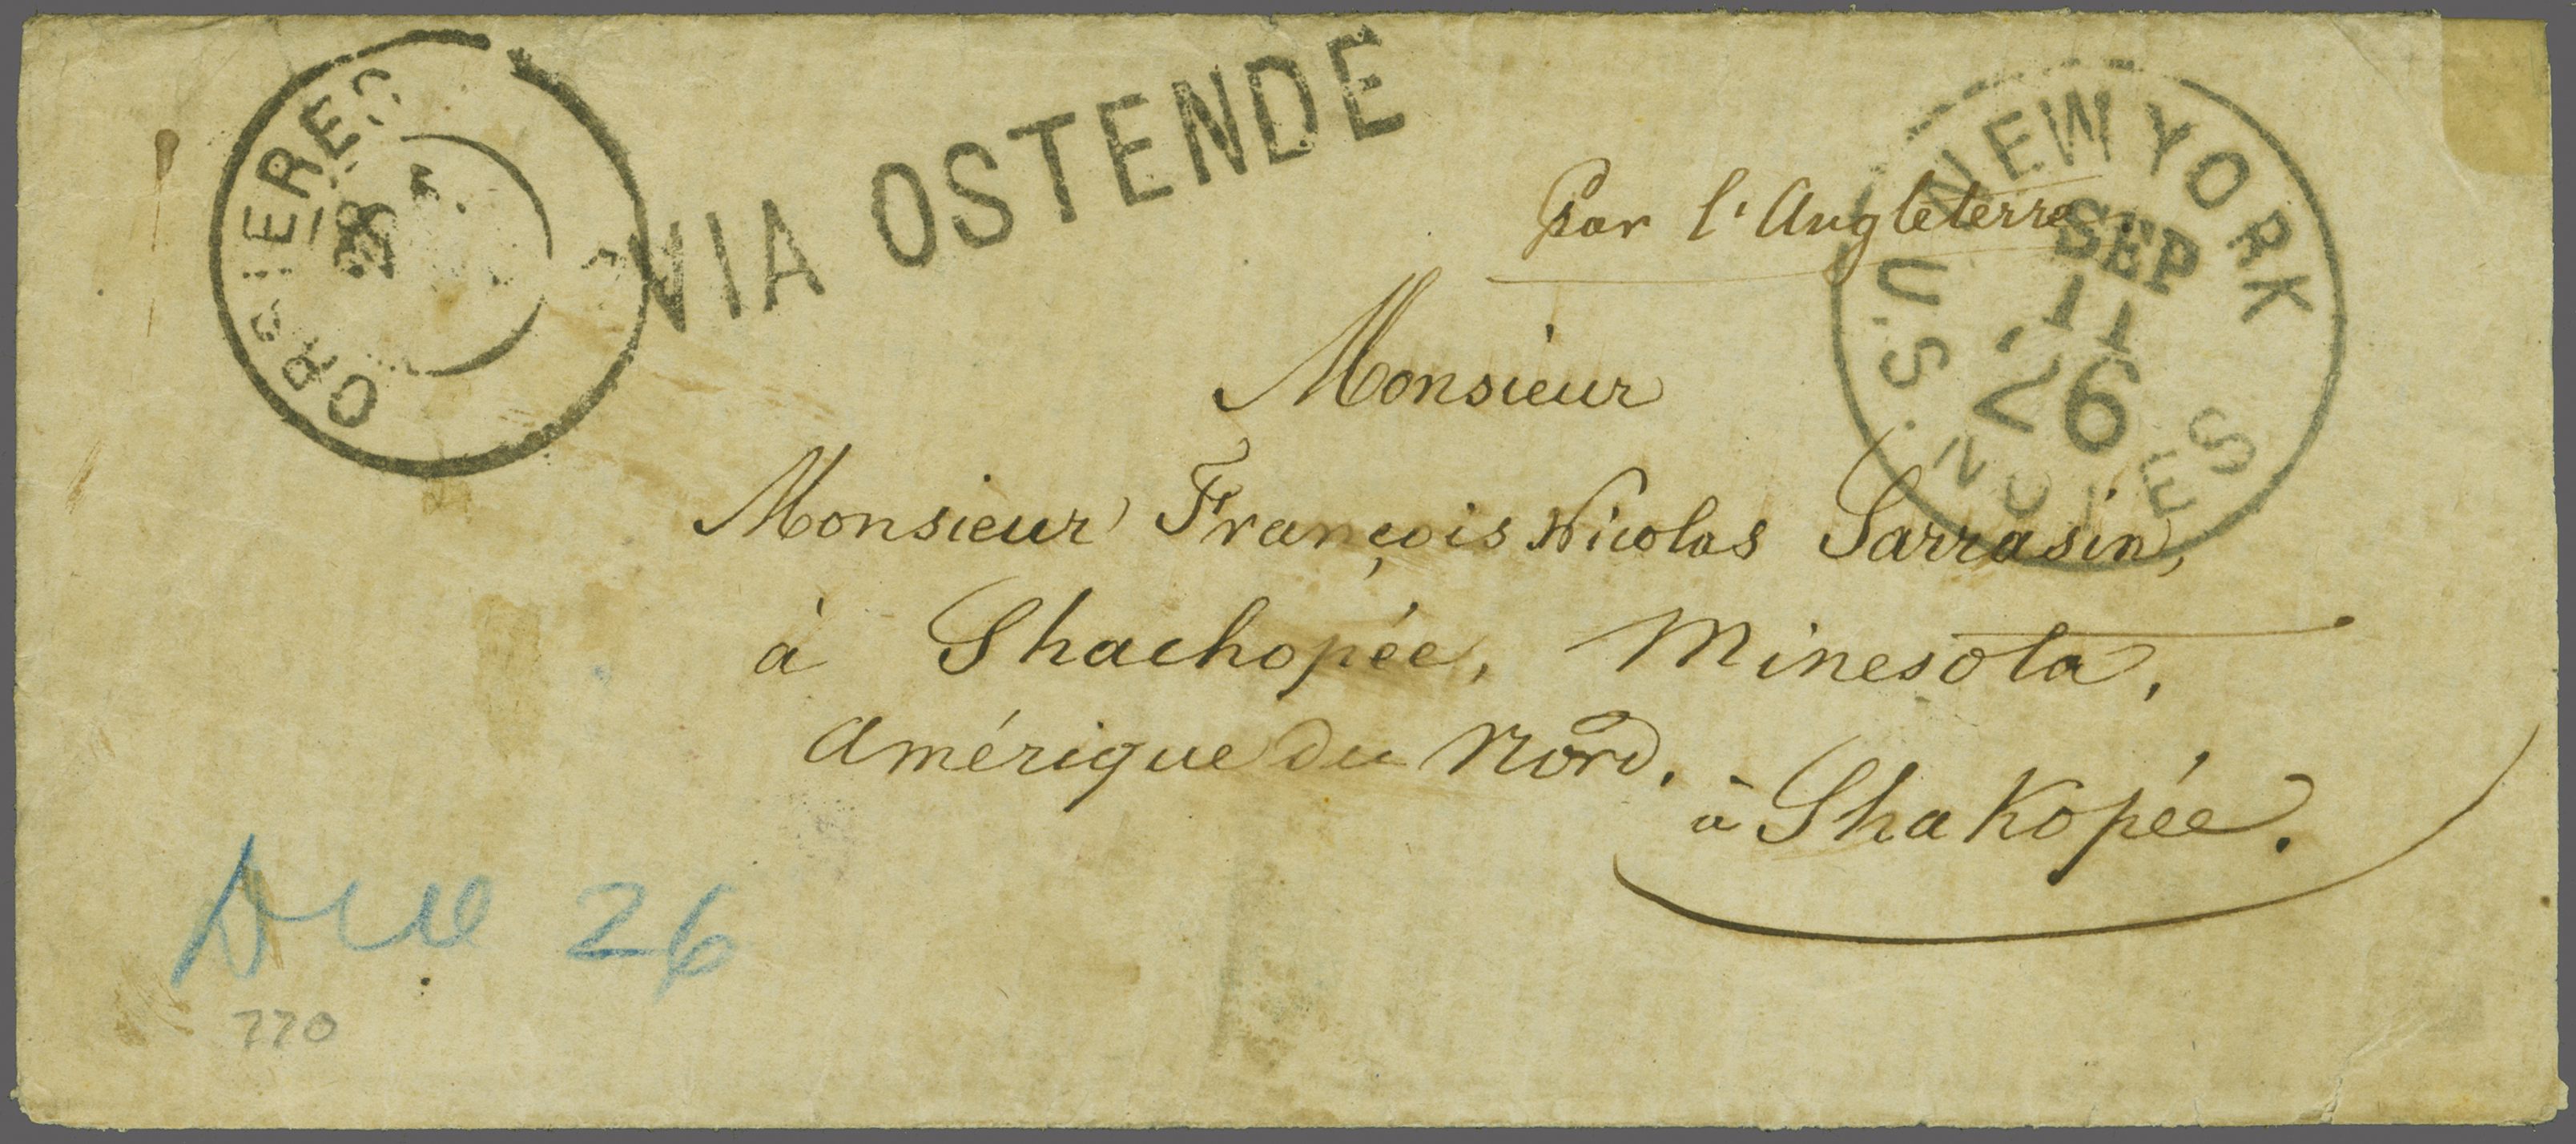 ORSIERES
28
VIA OSTENDE
NEW YORK
SEP
11
26
U.S. NOTES
Par l'Angleterre
Monsieur
Monsieur François Nicolas Sarrasin,
à Shachopée, Minesota,
Amérique du Nord.
à Shakopée.
Due 26
770